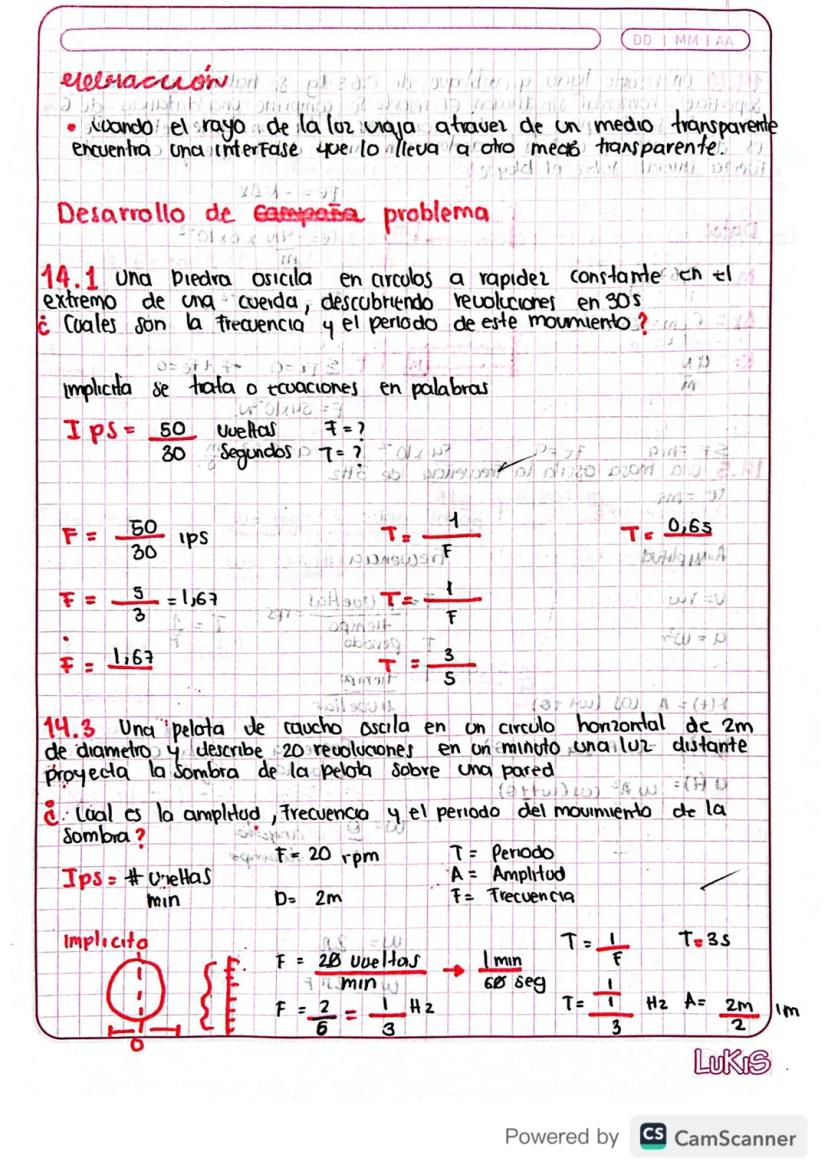 DD | MM | AA
• Cuando el rayo de la luz viaja atravez de un medio transparente
encuentra una interfase que lo lleva a otro medio transparente.
Desarrollo de campaña problema
14.1 Una piedra osicila en circulos a rapidez constante en el
extremo de una cuerda, descubriendo revoluciones en 30's
¿ Cuales son la frecuencia y el periodo de este movimiento?
implicita se trata o ecuaciones en palabras
Ips = 50 vueltas F = ?
30 Segundos T = ?
F = 50/30 ips T = 1/F T = 0,6s
F = 5/3 = 1,67 T = 1/F
F = 1,67 T = 3/5
14.3 Una pelota de caucho oscila en un circulo horizontal de 2m
de diametro y describe 20 revoluciones en un minuto una luz distante
proyecta la sombra de la pelota sobre una pared
¿ Cual es la amplitud, frecuencia y el periodo del movimiento de la
sombra?
F = 20 rpm T = Periodo
Ips = # vueltas A = Amplitud
min D = 2m F = Frecuencia
Implicito T = 1/F T = 3s
F = 20 vueltas/min → 1 min/60 seg
F = 2/6 = 1/3 Hz T = 1/1/3 Hz A = 2m/2 1m
D
LUKIS
Powered by CS CamScanner